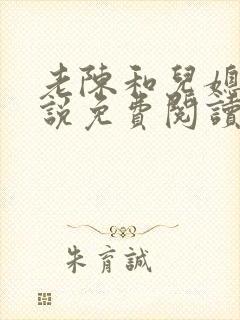 老陳和兒媳
說免費閱讀
朱育誠